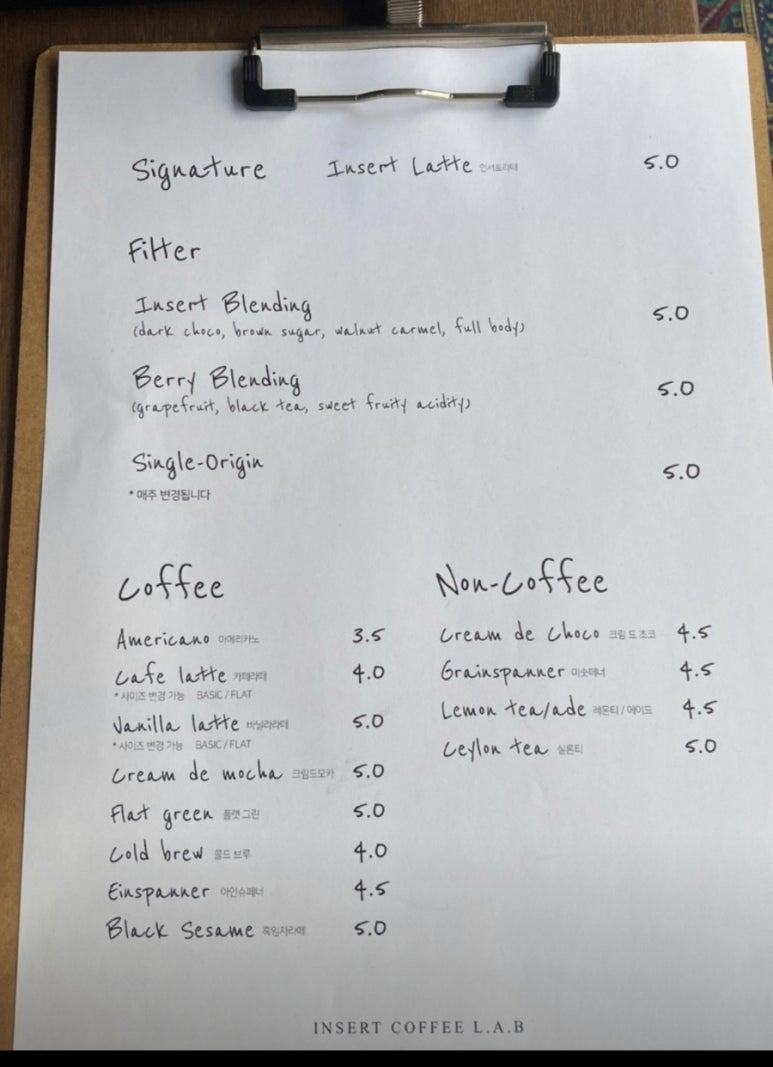 Signature Insert Latte 인서트라떼 5.0
Filter
Insert Blending 5.0
(dark choco, brown sugar, walnut carmel, full body)
Berry Blending 5.0
(grapefruit, black tea, sweet fruity acidity)
Single-Origin 5.0
* 매주 변경됩니다
Coffee
Americano 아메리카노 3.5
Cafe latte 카페라떼 4.0
* 사이즈 변경 가능 BASIC / FLAT
Vanilla latte 바닐라라떼 5.0
* 사이즈 변경 가능 BASIC / FLAT
Cream de mocha 크림드모카 5.0
Flat green 플랫 그린 5.0
Cold brew 콜드 브루 4.0
Einspanner 아인슈페너 4.5
Black Sesame 흑임자라떼 5.0
Non-Coffee
Cream de Choco 크림 드 초코 4.5
Grainspanner 미숫페너 4.5
Lemon tea/ade 레몬티 / 에이드 4.5
Ceylon tea 실론티 5.0
INSERT COFFEE L.A.B